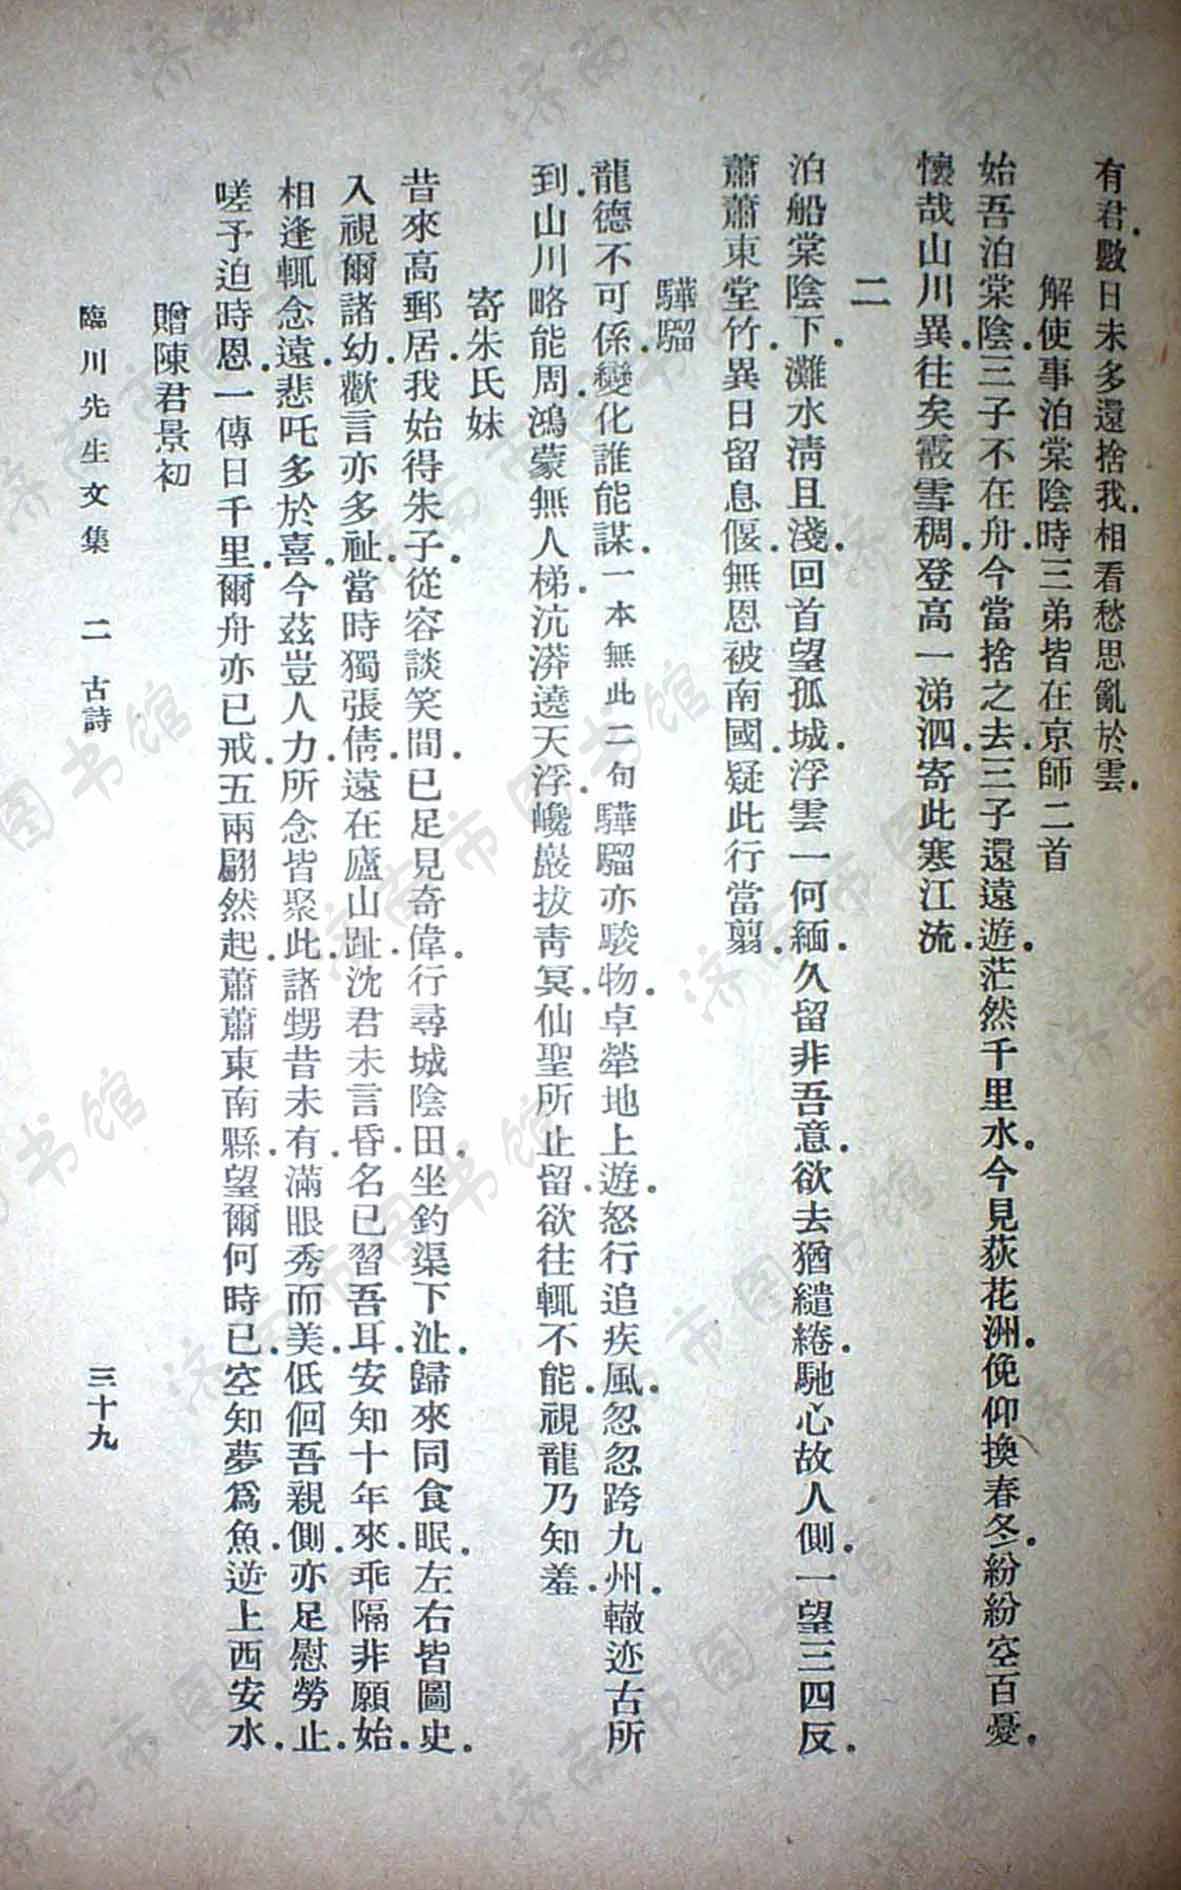 有君數日未多還捨我相看愁思亂於雲
解使事泊棠陰時三弟皆在京師二首
始吾泊棠陰三子不在舟今當捨之去三子還遠遊茫然千里水今見荻花洲俛仰換春冬紛紛空百憂
懷哉山川異往矣霰雪稠登高一涕泗寄此寒江流
二
泊船棠陰下灘水淸且淺回首望孤城浮雲一何緬久留非吾意欲去猶繾綣馳心故人側一望三四反
蕭蕭東堂竹異日留息偃無恩被南國疑此行當翦
驊騮
龍德不可係變化誰能謀一本無此二句驊騮亦駿物卓犖地上遊怒行追疾風忽忽跨九州轍迹古所
到山川略能周鴻蒙無人梯沆漭遶天浮巉巖拔靑冥仙聖所止留欲往輒不能視龍乃知羞
寄朱氏妹
昔來高郵居我始得朱子從容談笑間已足見奇偉行尋城陰田坐釣渠下沚歸來同食眠左右皆圖史
入視爾諸幼歡言亦多祉當時獨張倩遠在廬山趾沈君未言昏名已習吾耳安知十年來乖隔非願始
相逢輒念遠悲吒多於喜今茲豈人力所念皆聚此諸甥昔未有滿眼秀而美低佪吾親側亦足慰勞止
嗟予迫時恩一傳日千里爾舟亦已戒五兩翩然起蕭蕭東南縣望爾何時已空知夢爲魚逆上西安水
贈陳君景初
臨川先生文集 二 古詩 三十九
济南市图书馆